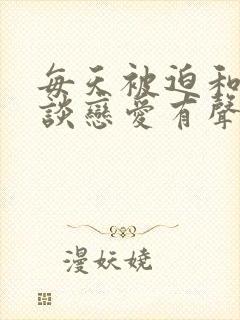 每天被迫和
談戀愛有聲
漫妖嬈